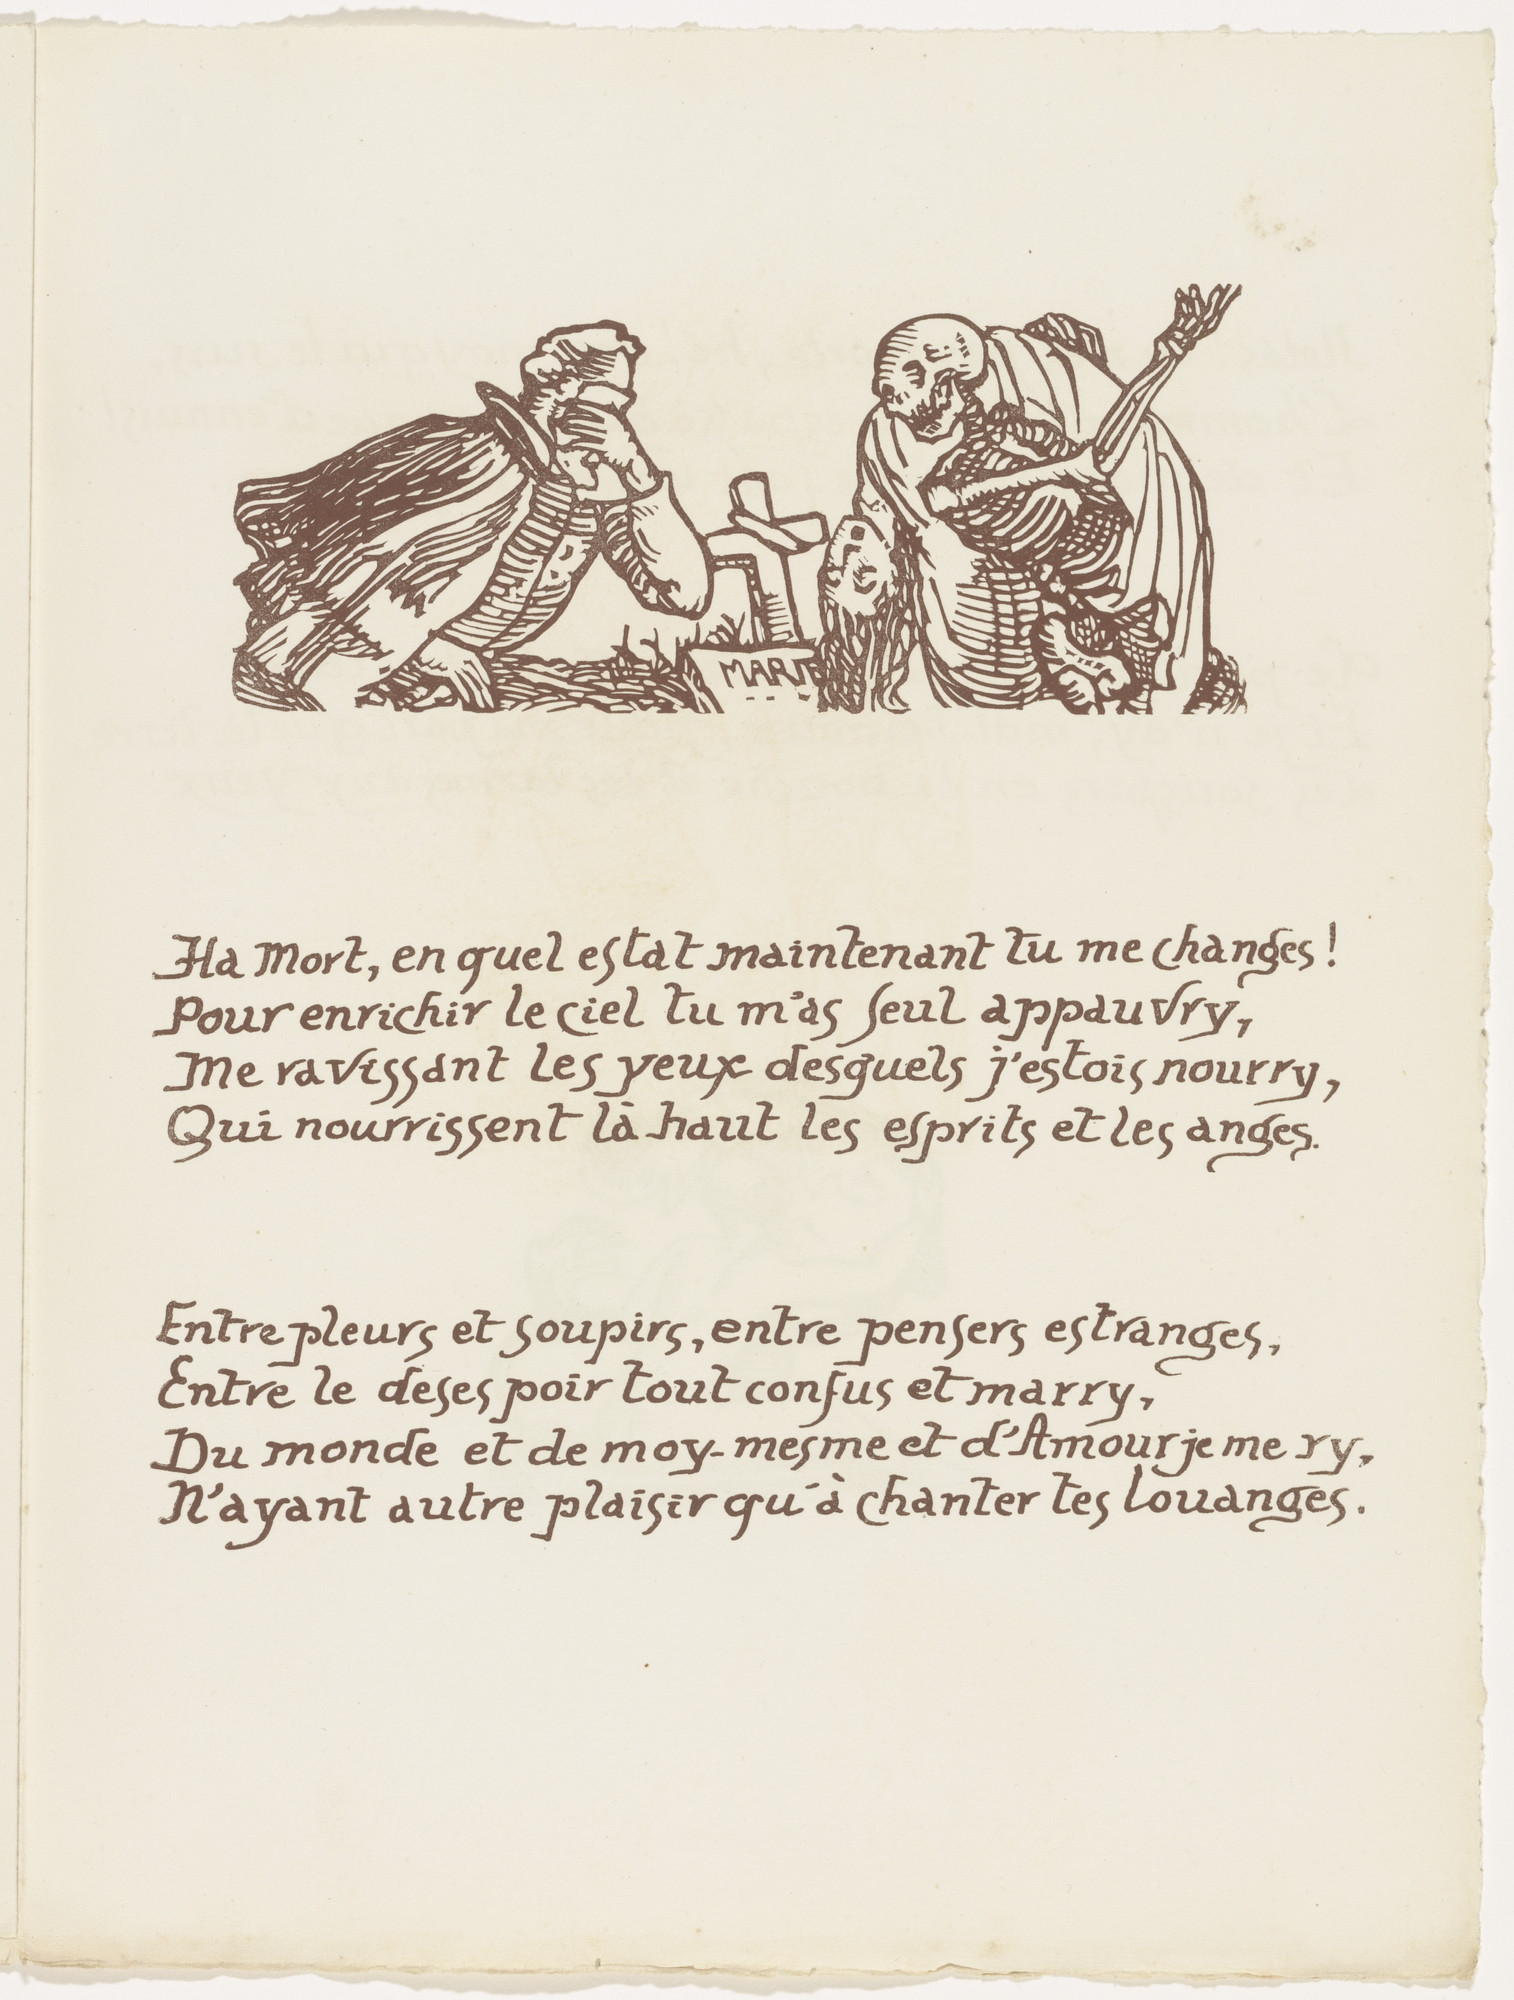 MARIE
Ha Mort, en quel estat maintenant tu me changes!
Pour enrichir le ciel tu m'as seul appauvry,
Me ravissant les yeux desquels j'estois nourry,
Qui nourrissent là haut les esprits et les anges.
Entre pleurs et soupirs, entre pensers estranges,
Entre le desespoir tout confus et marry,
Du monde et de moy-mesme et d'Amour je me ry,
N'ayant autre plaisir qu'à chanter tes louanges.